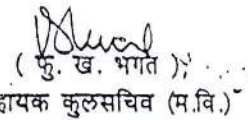 ( फु. ख. भगत )
हायक कुलसचिव (म.वि.)